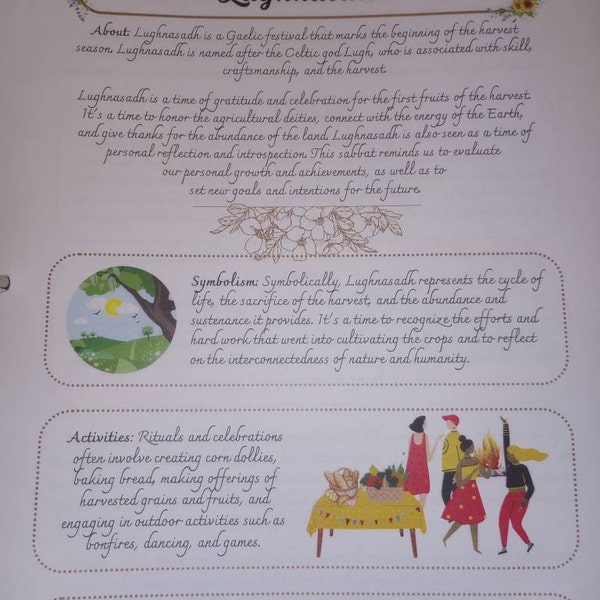 Lughnasadh
About: Lughnasadh is a Gaelic festival that marks the beginning of the harvest
season. Lughnasadh is named after the Celtic god Lugh, who is associated with skill,
craftsmanship, and the harvest.
Lughnasadh is a time of gratitude and celebration for the first fruits of the harvest.
It's a time to honor the agricultural deities, connect with the energy of the Earth,
and give thanks for the abundance of the land. Lughnasadh is also seen as a time of
personal reflection and introspection. This sabbat reminds us to evaluate
our personal growth and achievements, as well as to
set new goals and intentions for the future.
Symbolism: Symbolically, Lughnasadh represents the cycle of
life, the sacrifice of the harvest, and the abundance and
sustenance it provides. It's a time to recognize the efforts and
hard work that went into cultivating the crops and to reflect
on the interconnectedness of nature and humanity.
Activities: Rituals and celebrations
often involve creating corn dollies,
baking bread, making offerings of
harvested grains and fruits, and
engaging in outdoor activities such as
bonfires, dancing, and games.